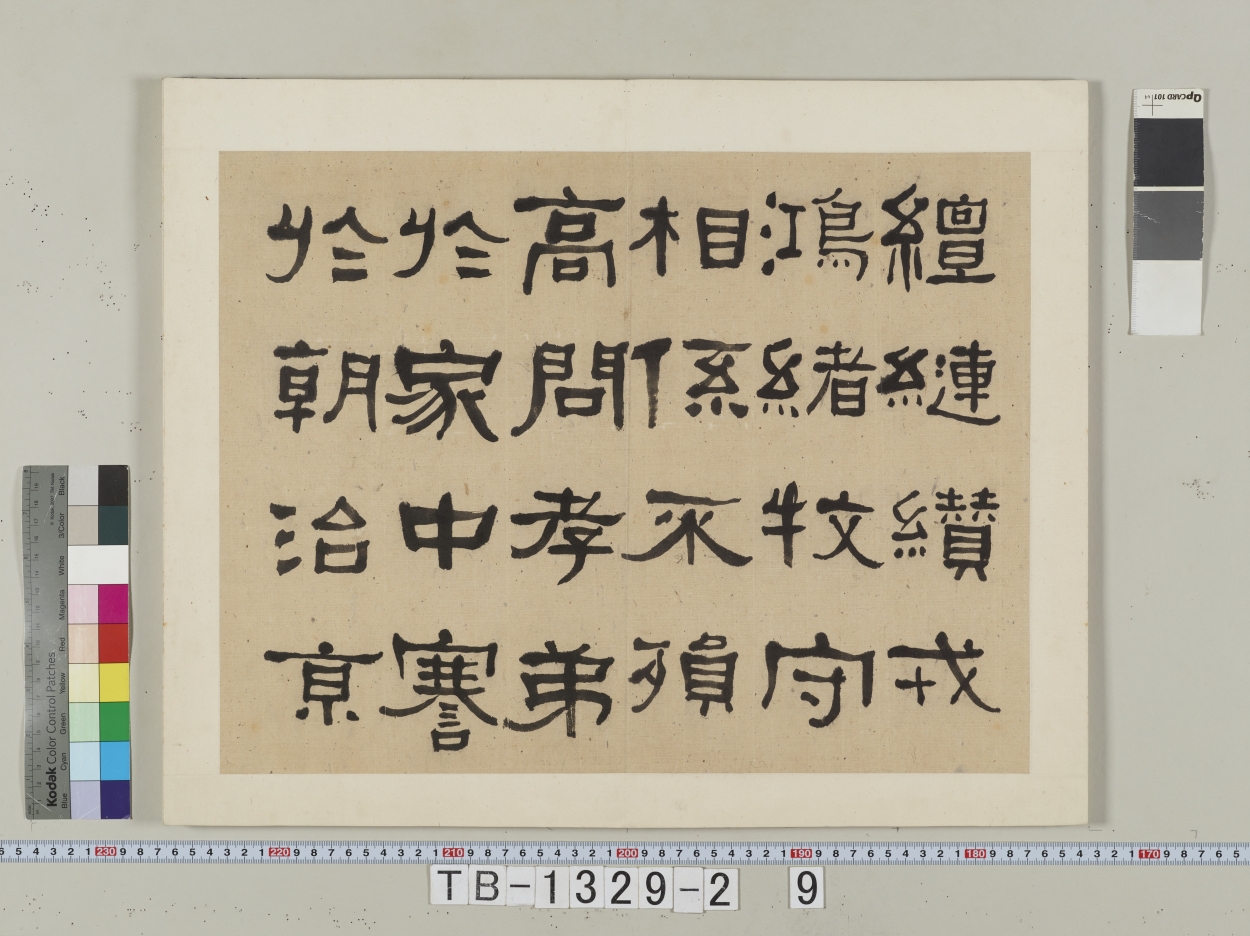 繵縺纘戎
鴻緒牧守
相係不殞
高問孝弟
於家中謇
於朝治京
QPCARD 101
Kodak Color Control Patches
Blue Cyan Green Yellow Red Magenta White 3/Color Black
5 4 3 2 1 230 9 8 7 6 5 4 3 2 1 220 9 8 7 6 5 4 3 2 1 210 9 8 7 6 5 4 3 2 1 200 9 8 7 6 5 4 3 2 1 190 9 8 7 6 5 4 3 2 1 180 9 8 7 6 5 4 3 2 1 170 9 8 7 6 5
TB-1329-2 9